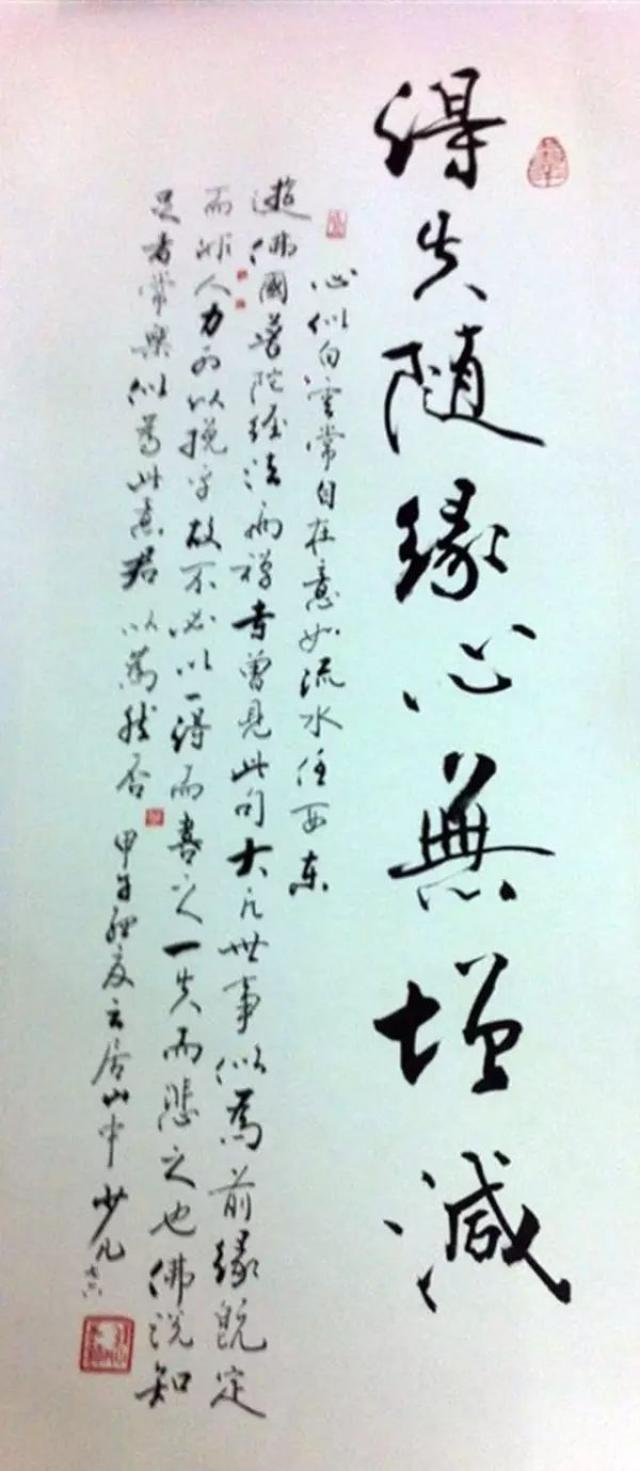 得失随缘心無增減
心似白雲常自在意如流水任西东
遊佛國普陀经法雨禅寺曾見此句大凡世事似為前缘既定
而非人力可以挽字故不必以一得而喜之一失而悲之也佛说知
足者常樂似為此意君以為然否
甲午初夏云居山中少凡